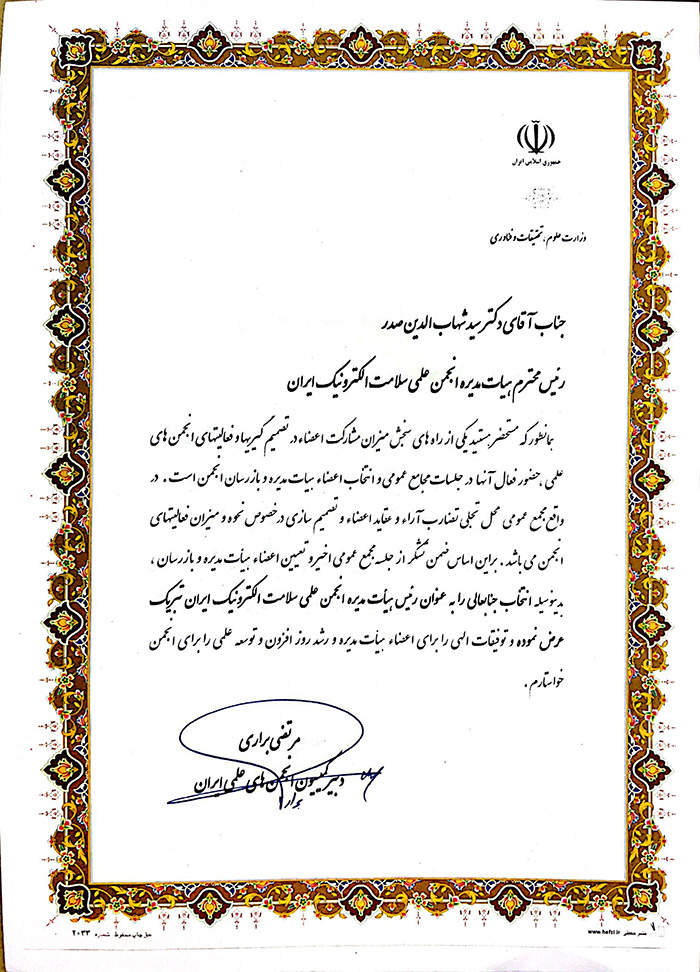 جمهوری اسلامی ایران
وزارت علوم، تحقیقات و فناوری
جناب آقای دکتر سید شهاب الدین صدر
رئیس محترم هیات مدیره انجمن علمی سلامت الکترونیک ایران
بمانطور که مستحضر هستید یکی از راه های سنجش میزان مشارکت اعضاء در تصمیم گیریها و فعالیتهای انجمن های
علمی ،حضور فعال آنها در جلسات مجامع عمومی و انتخاب اعضاء هیات مدیره و بازرسان انجمن است . در
واقع مجمع عمومی محل تجلی تضارب آراء و عقاید اعضاء و تصمیم سازی درخصوص نحوه و میزان فعالیتهای
انجمن می باشد . براین اساس ضمن تشکر از جلسه مجمع عمومی اخیر و تعیین اعضاء هیأت مدیره و بازرسان ،
بدینوسیله انتخاب جنابعالی را به عنوان رئیس هیأت مدیره انجمن علمی سلامت الکترونیک ایران تبریک
عرض نموده و توفیقات الهی را برای اعضاء هیأت مدیره و رشد روز افزون و توسعه علمی را برای انجمن
خواستارم .
مرتضی براری
دبیر کمیسیون انجمن های علمی ایران
حق چاپ محفوظ شماره ۲۰۳۳
www.hafzi.ir